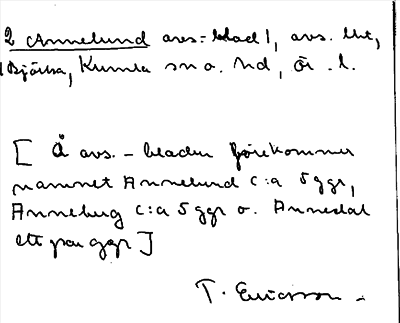 2 Annelund avs.=blad 1, avs. lht,
Björka, Kumla sn o. hd, Ör. l.
[ Å avs. - bladen förekommer
namnet Annelund c:a 5 ggr,
Anneberg c:a 5 ggr o. Annedal
ett par ggr ]
T. Ericsson